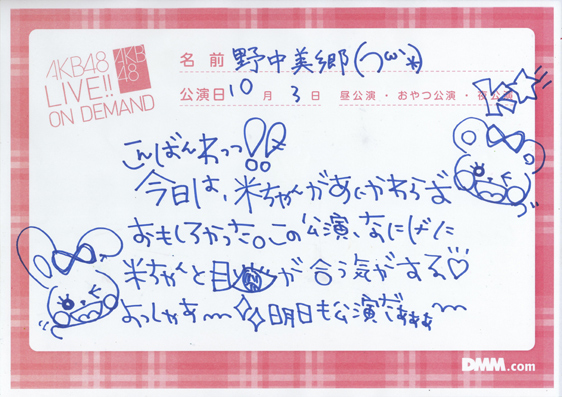 AKB48
LIVE!!
ON DEMAND
AKB
48
名前 野中美郷(つω`*)
公演日 10 月 3 日 昼公演 ・ おやつ公演 ・ 夜公演
こんばんわっっ!!
今日は、米ちゃんがあいかわらず
おもしろかったo この公演、なにげに
米ちゃんと目が合う気がする♡
よっしゃあ〜 明日も公演だぁぁぁ〜
DMM.com